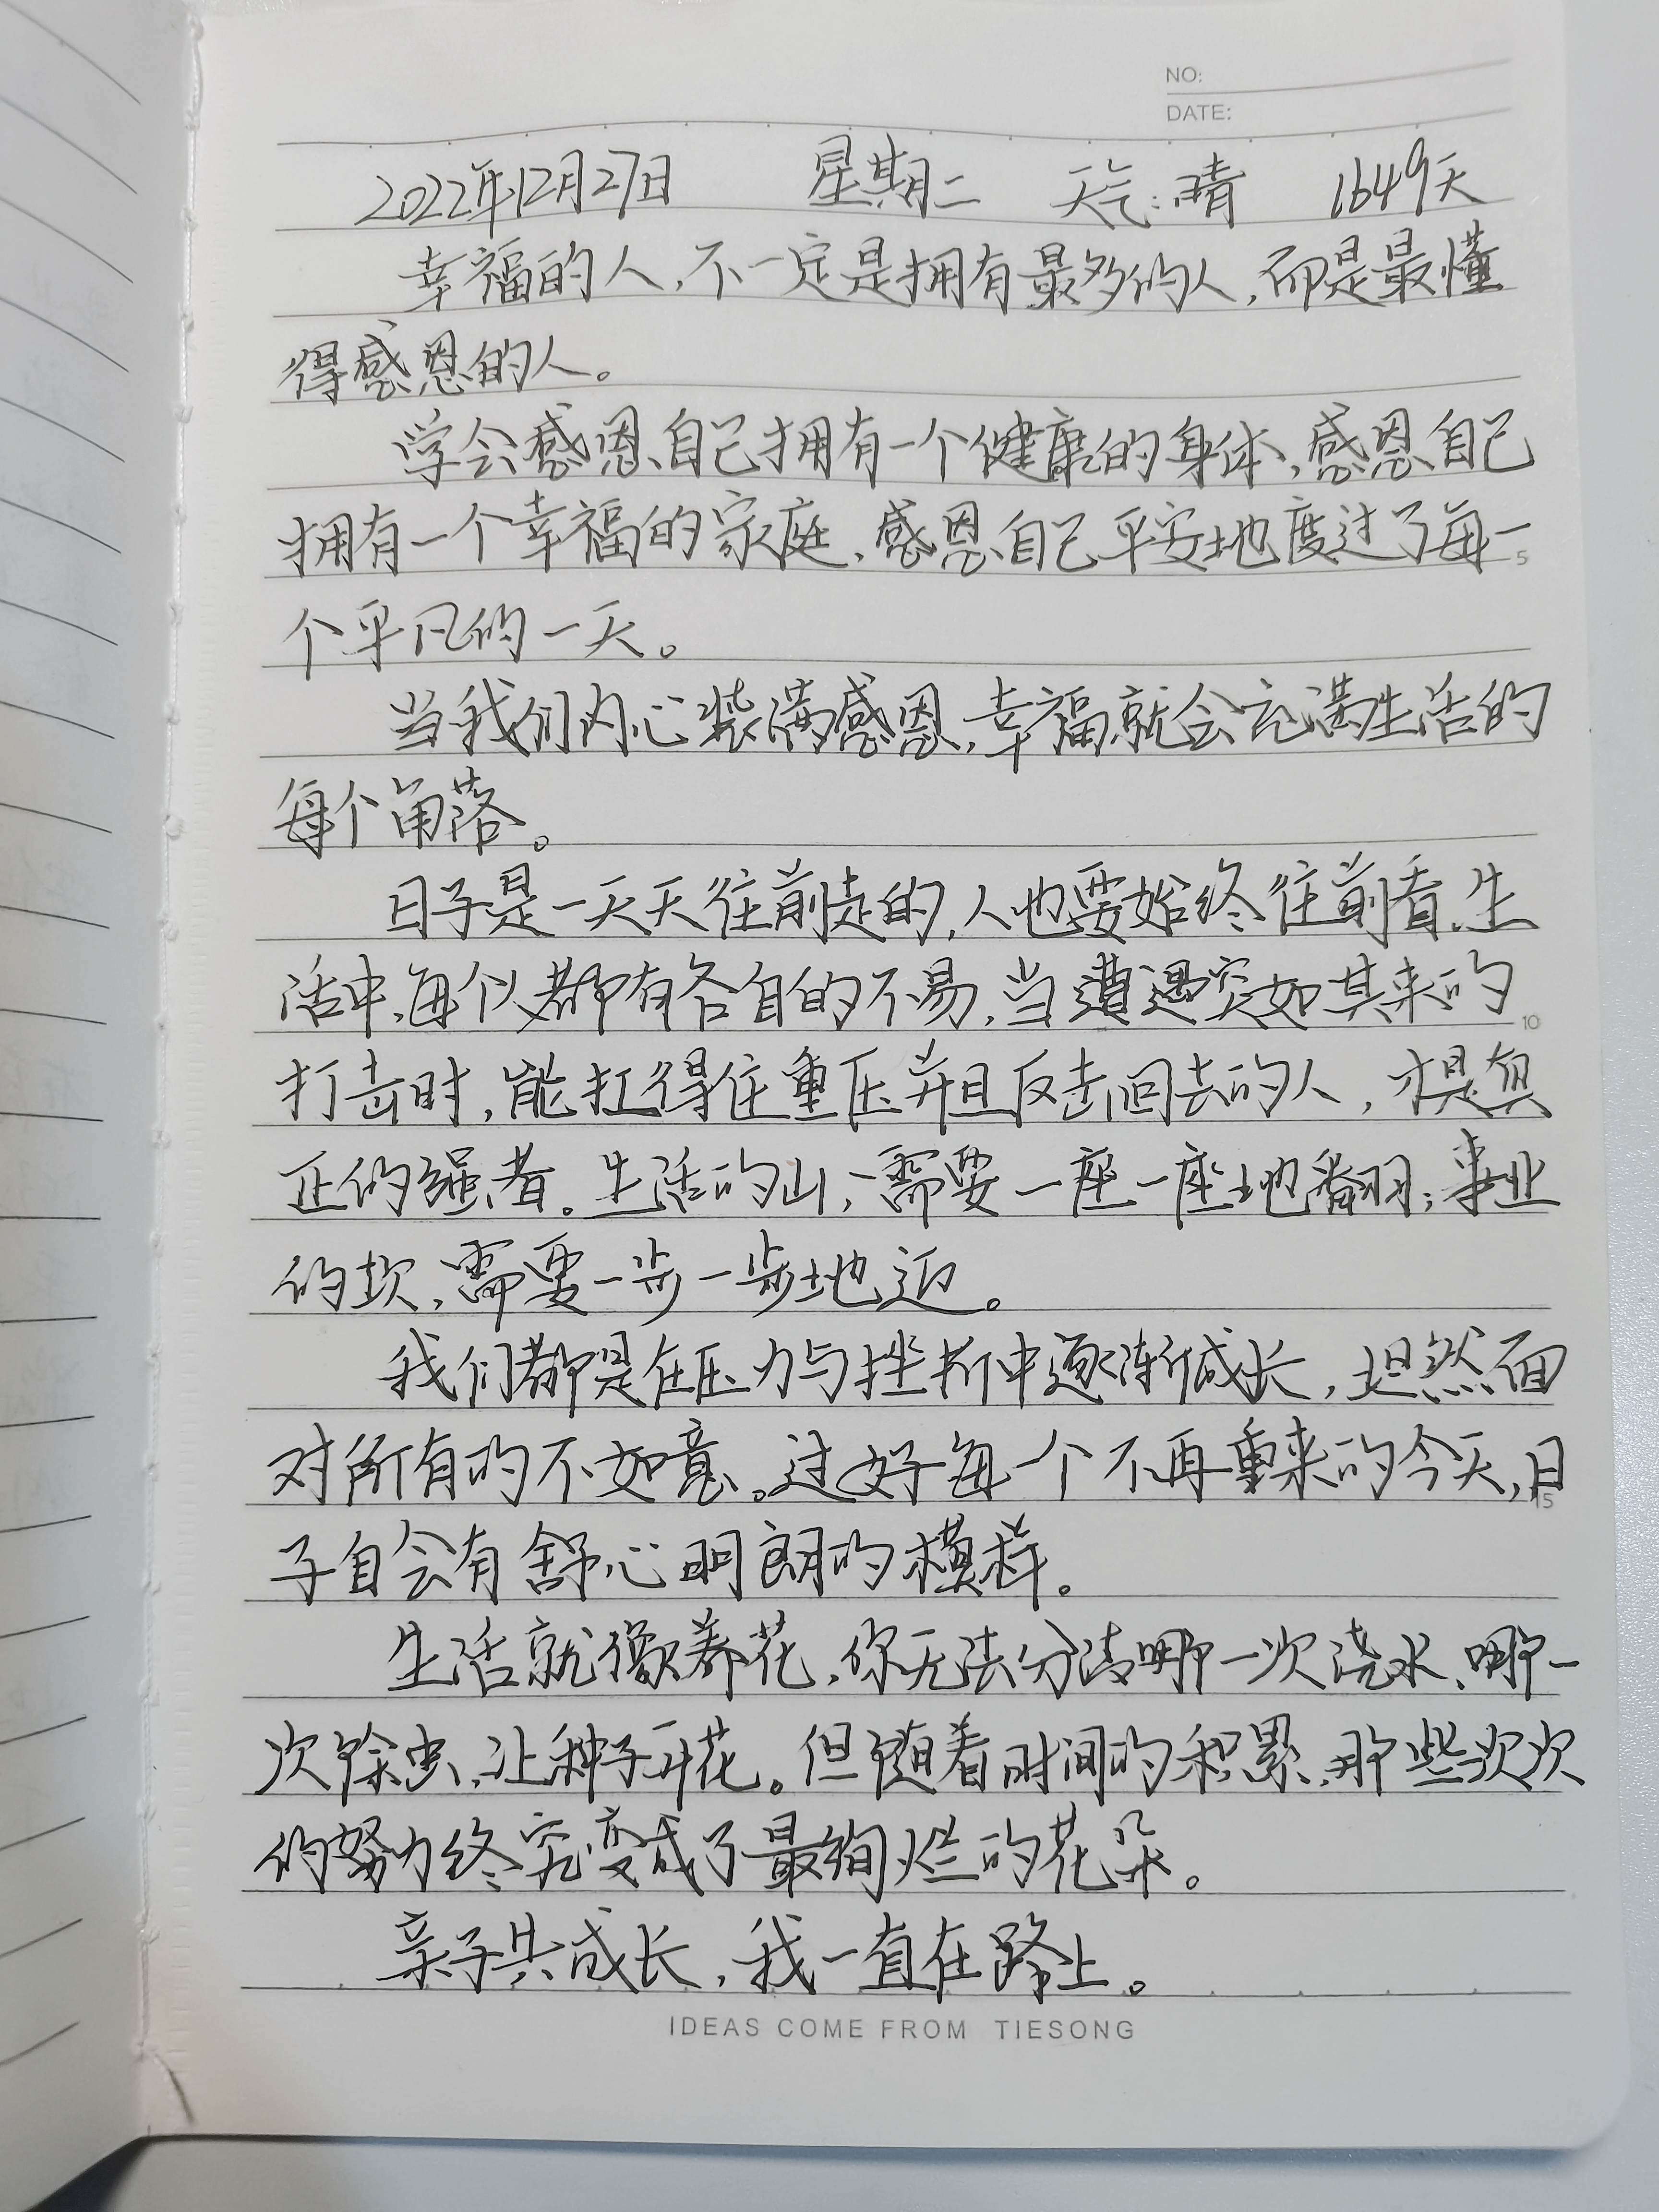 NO:
DATE:
2022年12月27日 星期二 天气:晴 1649天
幸福的人,不一定是拥有最多的人,而是最懂
得感恩的人。
学会感恩自己拥有一个健康的身体,感恩自己
拥有一个幸福的家庭,感恩自己平安地度过了每一
5
个平凡的一天。
当我们内心装满感恩,幸福就会充满生活的
每个角落。
日子是一天天往前走的,人也要始终往前看,生
活中,每个人都有各自的不易,当遭遇突如其来的
10
打击时,能扛得住重压并且反击回去的人,才是真
正的强者。生活的山,需要一座一座地翻;事业
的坎,需要一步一步地迈。
我们都是在压力与挫折中逐渐成长,坦然面
对所有的不如意。过好每一个不再重来的今天,日
15
子自会有舒心明朗的模样。
生活就像养花,你无法分清哪一次浇水、哪一
次除虫,让种子开花。但随着时间的积累,那些次次
的努力终究变成了最绚烂的花朵。
亲子共成长,我一直在路上。
IDEAS COME FROM TIESONG